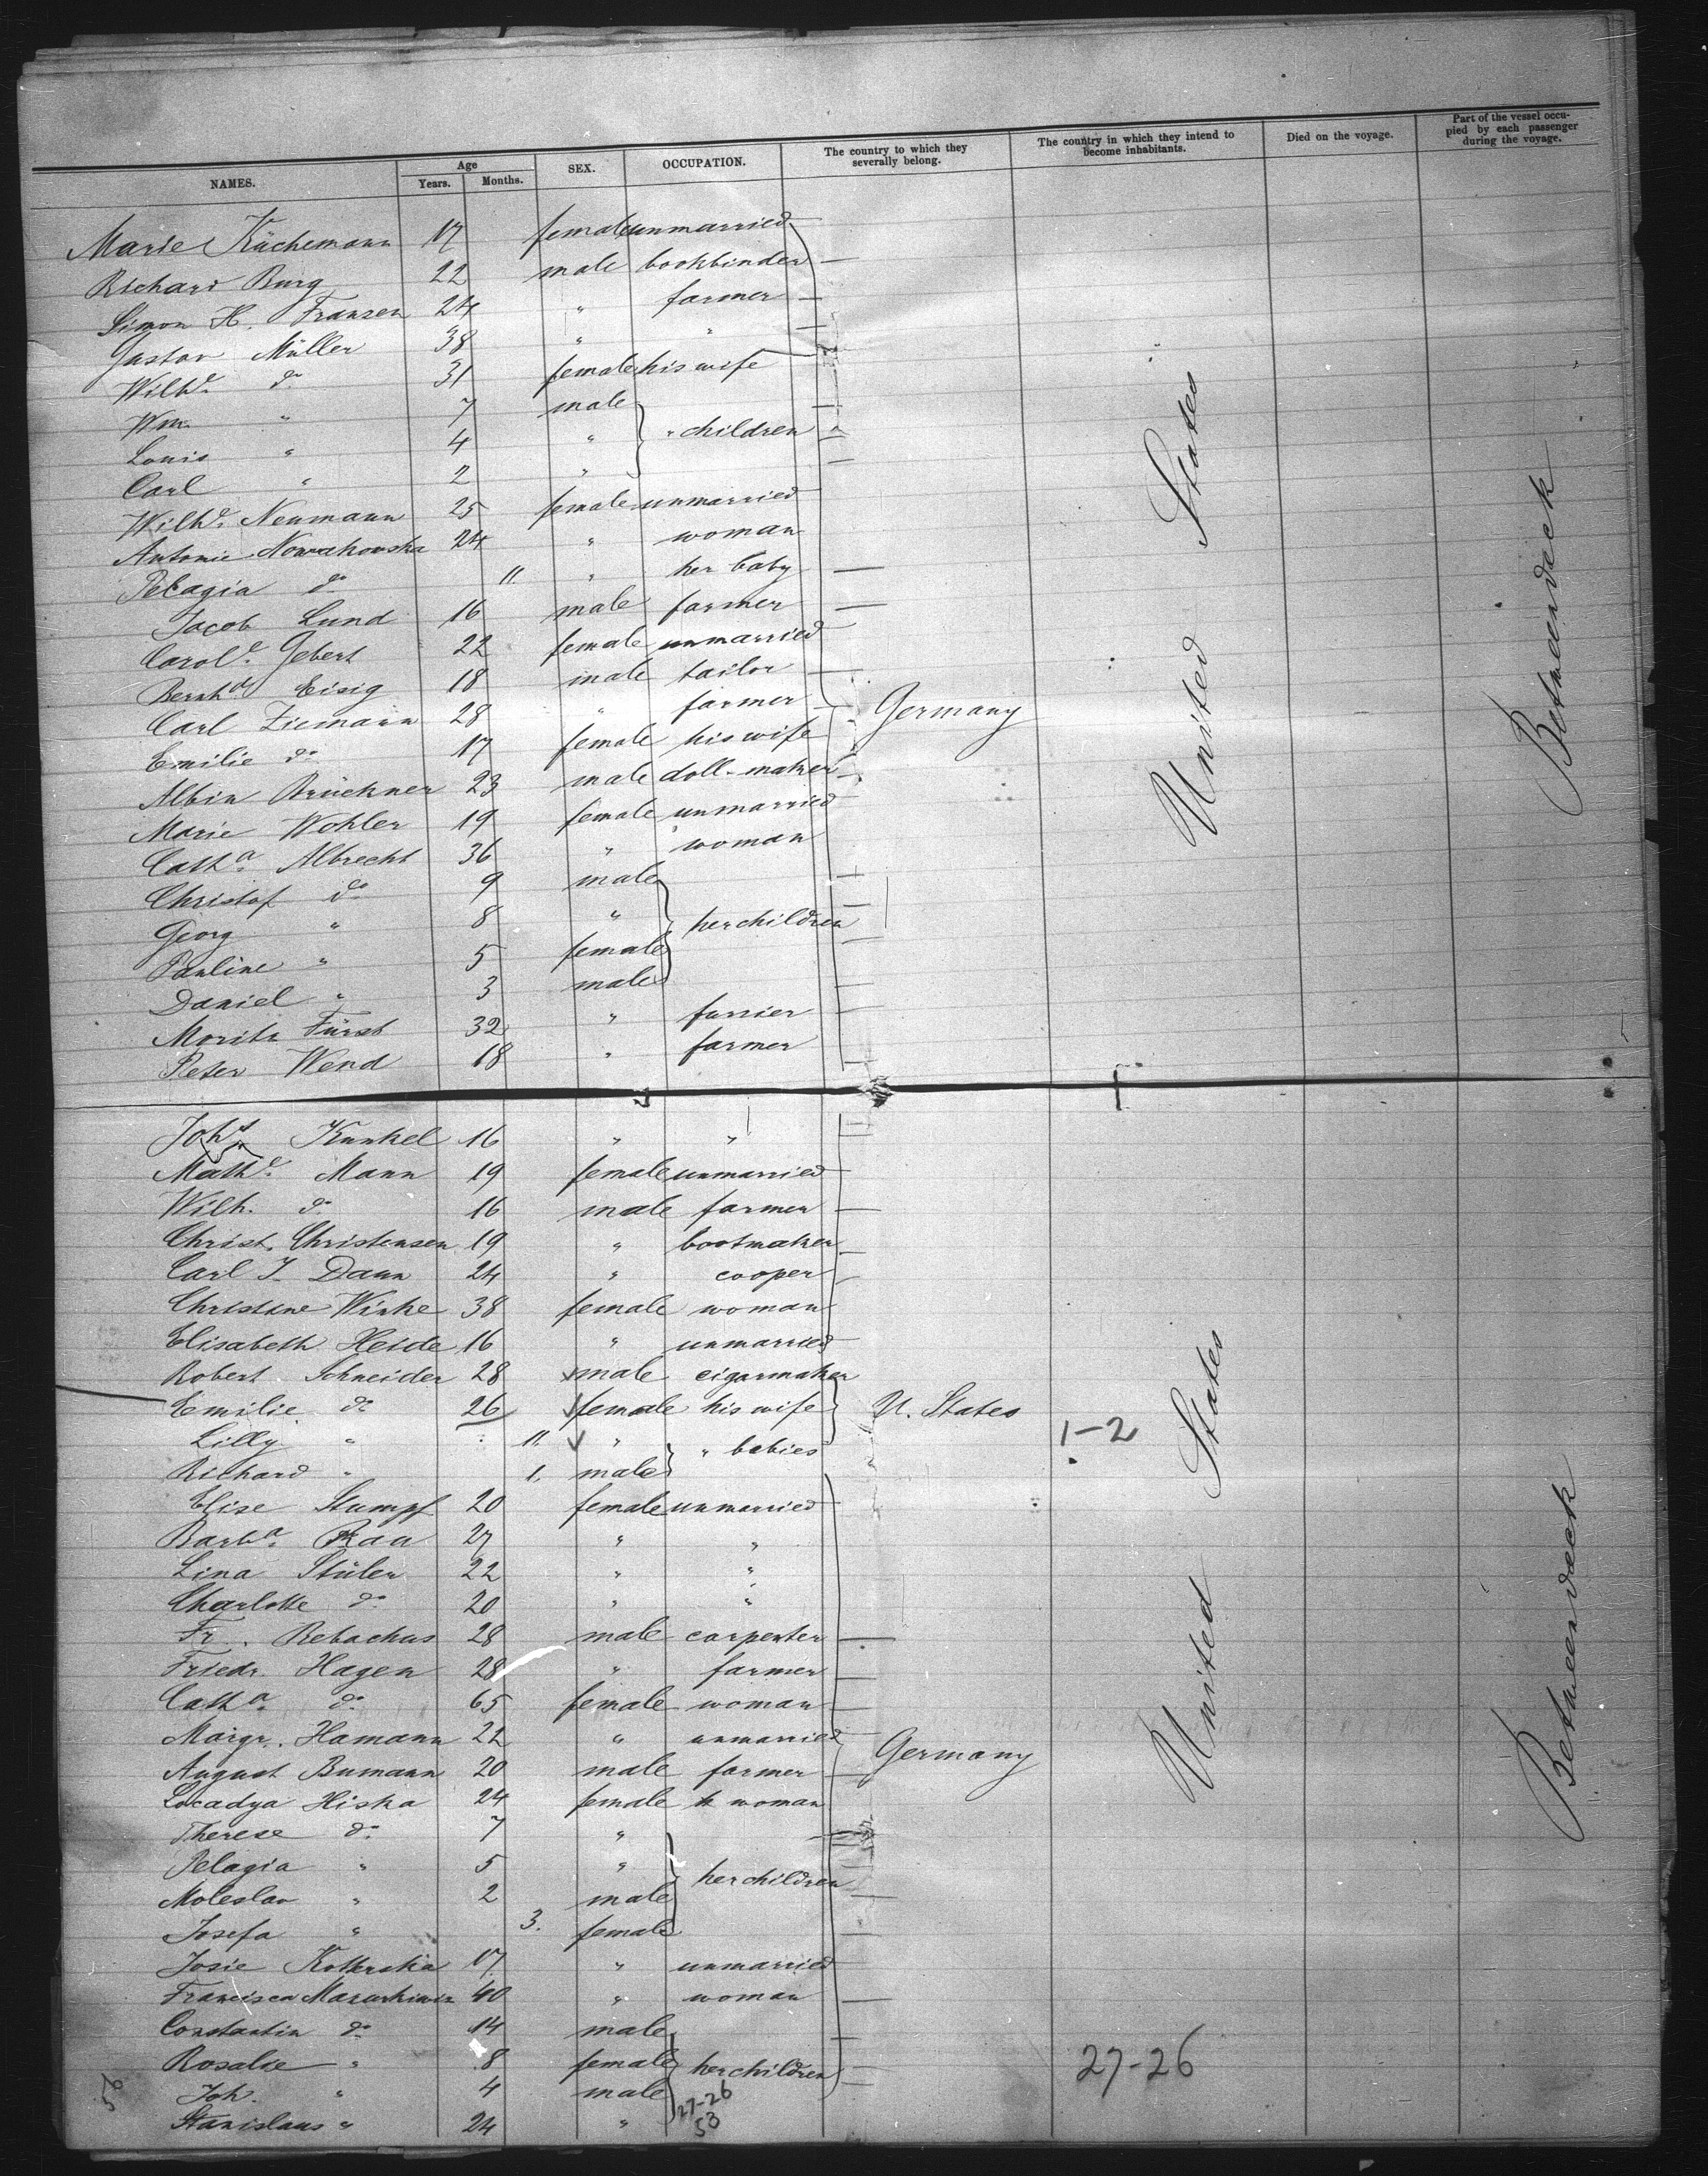 NAMES. Age Years. Months. SEX. OCCUPATION. The country to which they severally belong. The country in which they intend to become inhabitants. Died on the voyage. Part of the vessel occupied by each passenger during the voyage.
Marie Küchemann 17 female unmarried
Richard Burg 22 male bookbinder
Simon H. Franzen 24 " farmer
Gustav Müller 38 " "
Wilhe. do 31 female his wife
Wm. " 7 male
Louis " 4 " " children
Carl " 2 "
Wilhe. Neumann 25 female unmarried
Antonie Nowakowska 24 " woman
Pelagia do 11. " her baby
Jacob Lund 16 male farmer
Carole. Gebert 22 female unmarried
Bernhd. Eisig 18 male tailor
Carl Ziemann 28 " farmer Germany United States Betweendeck
Emilie do 17 female his wife
Albin Brückner 23 male doll-maker
Marie Wohler 19 female unmarried
Catha. Albrecht 36 " woman
Christof do 9 male
Georg " 8 " her children
Pauline " 5 female
Daniel " 3 male
Moritz Fürst 32 " furrier
Peter Wend 18 " farmer
Joh. Kunkel 16 " "
Mathe. Mann 19 female unmarried
Wilh. do 16 male farmer
Christ. Christensen 19 " bootmaker
Carl J. Daun 24 " cooper
Christine Winke 38 female woman
Elisabeth Heide 16 " unmarried
Robert Schneider 28 male cigarmaker
Emilie do 26 female his wife U. States 1-2
Lilly " 11. " " babies
Richard " 1. male
Elise Stumpf 20 female unmarried
Barba. Raa 27 " "
Lina Stüler 22 " "
Charlotte do 20 " "
Fr. Rebachus 28 male carpenter
Friedr. Hagen 28 " farmer
Catha. do 65 female woman
Margr. Hamann 22 " unmarried
August Bumann 20 male farmer Germany United States Betweendeck
Locadya Hiska 24 female woman
Therese do 7 "
Pelagia " 5 " her children
Moleslav " 2 male
Josefa " 3. female
Josie 17 " unmarried
Francisca 40 " woman
Constantin do 14 male
Rosalie " 8 female her children 27-26
Joh. " 4 male 27-26
Stanislaus " 24 " 53